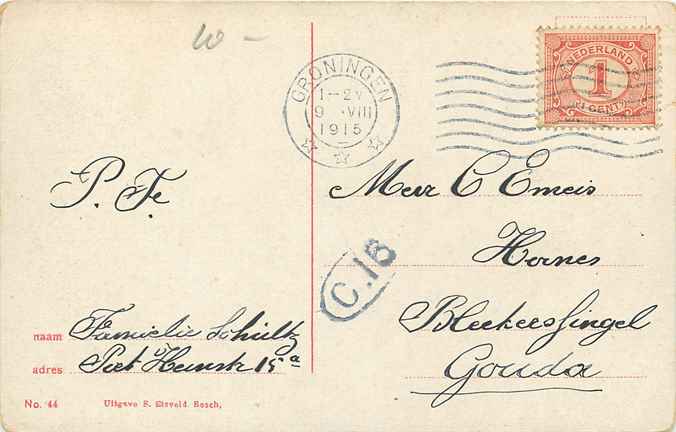 10 –
GRONINGEN
1-2V
9 VIII
1915
NEDERLAND
1
CENT
P. Fe
Mevr C Emeis
Hoenes
C.16
Bleekerssingel
Gouda
naam Familie Schultz
adres Piet Heinstr 15a
No. 44 Uitgave S. Elzveld. Bosch,